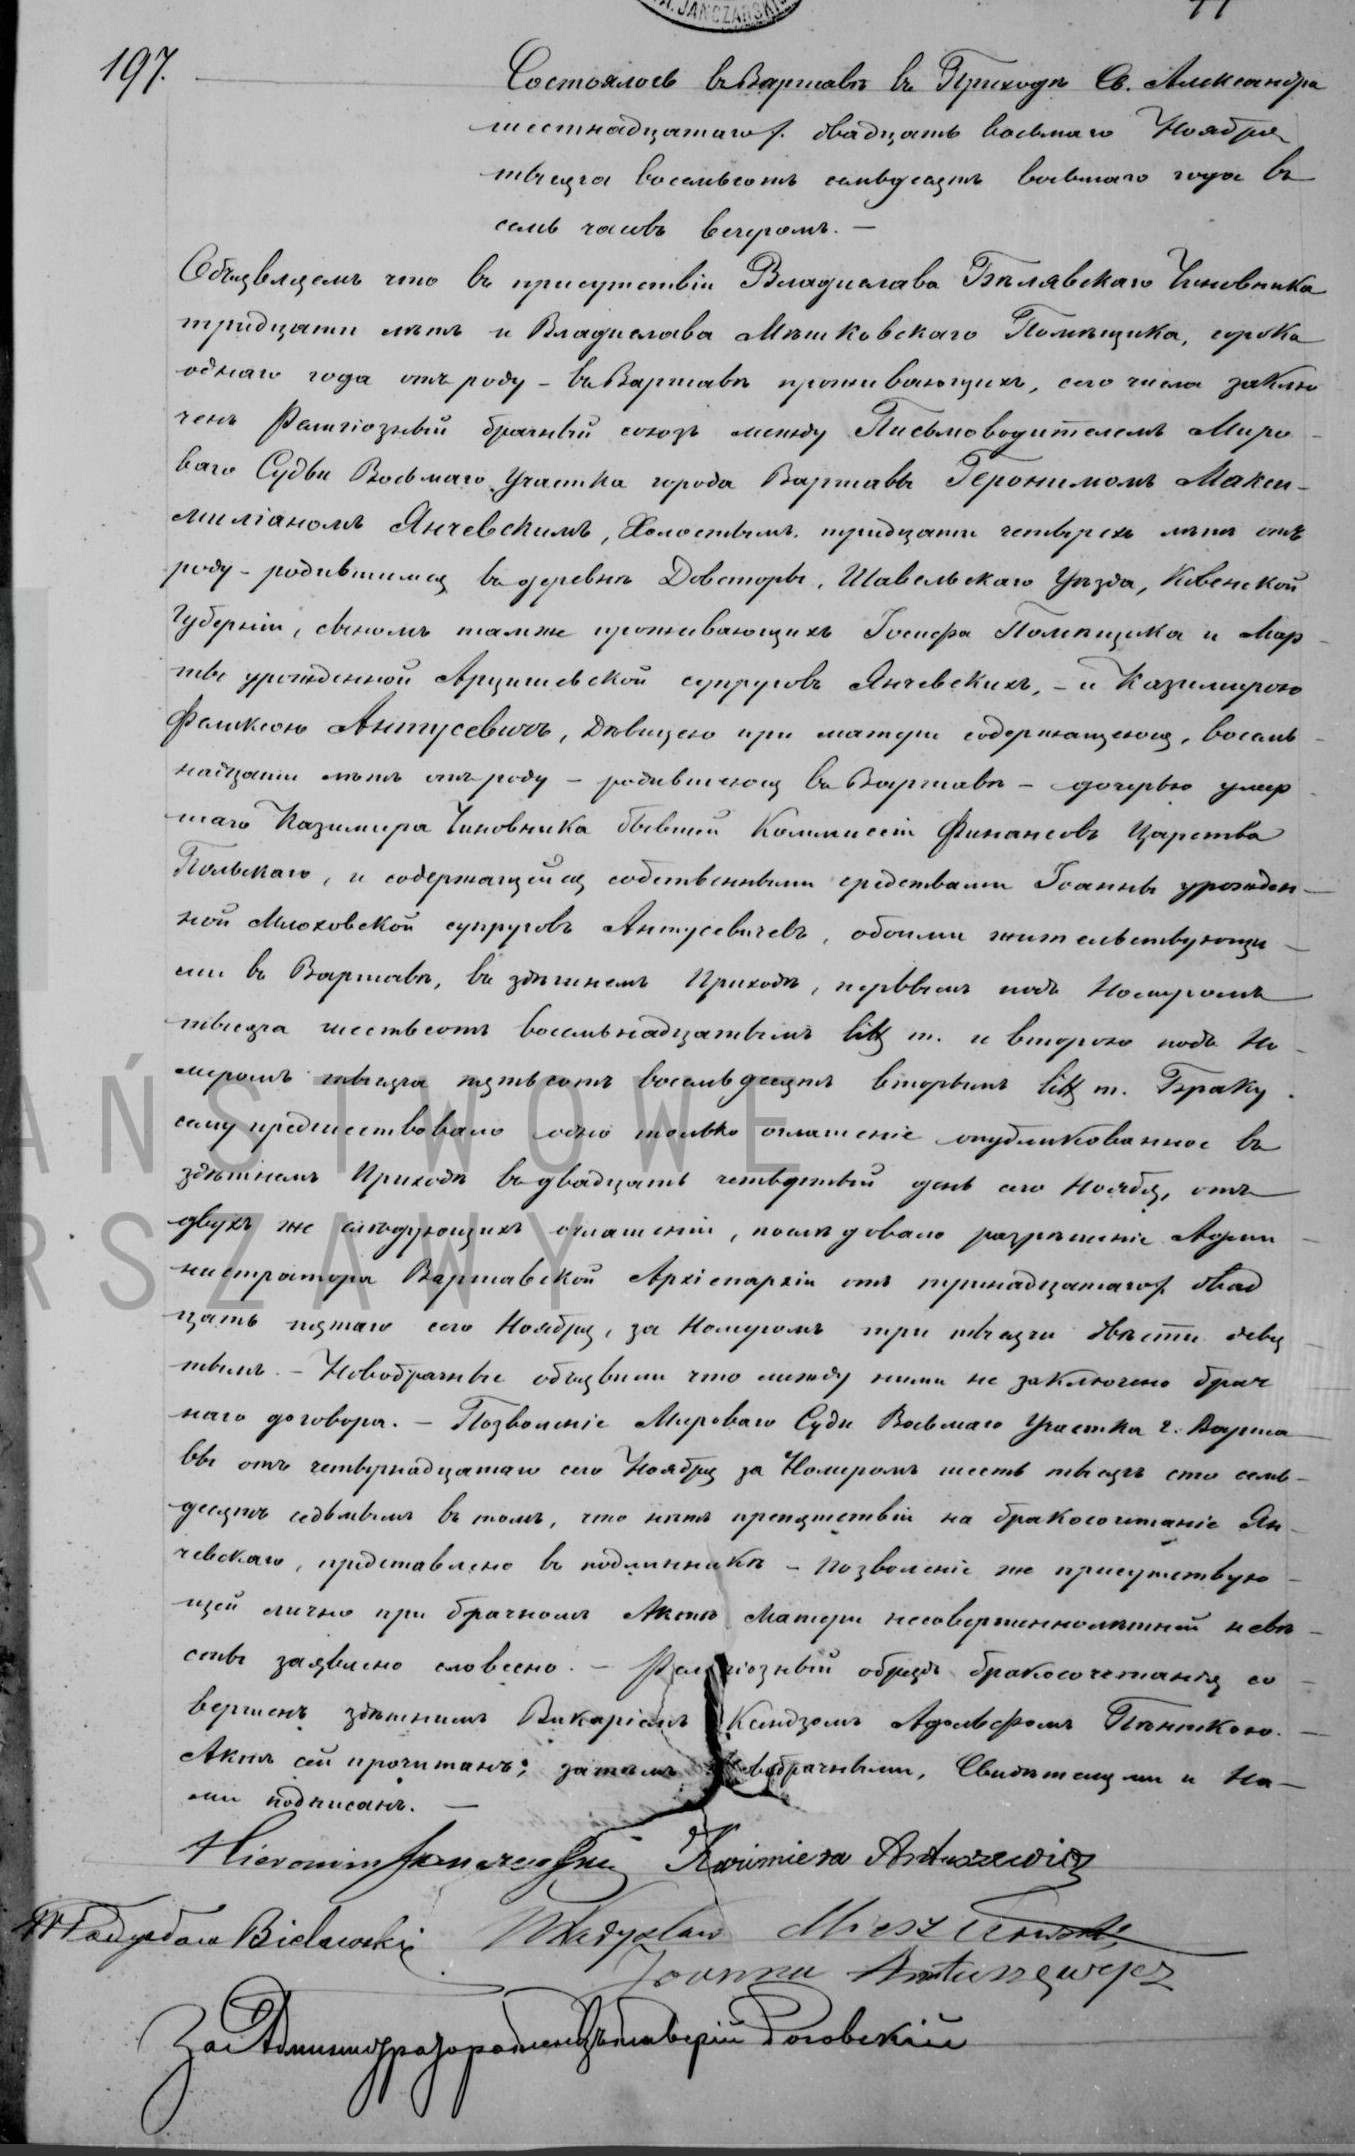 A. JANCZARSKI
197.
Состоялось въ Варшавѣ въ Приходѣ Св. Александра
шестнадцатаго /. двадцать восьмаго Ноября
тысяча восемьсотъ семьдесятъ восьмаго года въ
семь часовъ вечеромъ. —
Объявляемъ что въ присутствіи Владислава Бѣлявскаго Чиновника
тридцати лѣтъ и Владислава Мѣшковскаго Помѣщика, сорока
однаго года отъ роду – въ Варшавѣ проживающихъ, сего числа заклю
ченъ Религіозный брачный союзъ между Письмоводителемъ Миро-
ваго Судьи Восьмаго Участка города Варшавы Геронимомъ Макси-
миліаномъ Янчевскимъ, Холостымъ, тридцати четырехъ лѣтъ отъ
роду – родившимся въ деревнѣ Довсторы, Шавельскаго Уѣзда, Ковенской
Губерніи, сыномъ тамже проживающихъ Іосифа Помѣщика и Мар-
ты урожденной Арцишевской супруговъ Янчевскихъ, – и Казимирою
Феликсою Антусевичъ, Дѣвицею при матери содержащеюся, восемь-
надцати лѣтъ отъ роду – родившеюся въ Варшавѣ – дочерью умер-
шаго Казимира Чиновника бывшей Коммиссіи Финансовъ Царства
Польскаго, и содержащейся собственными средствами Іоанны урожден-
ной Млоховской супруговъ Антусевичевъ, обоими жительствующи-
ми въ Варшавѣ, въ здѣшнемъ Приходѣ, первымъ подъ Номеромъ
тысяча шестьсотъ восемьнадцатымъ litt m. и второю подъ Но-
меромъ тысяча пятьсотъ восемьдесятъ вторымъ litt m. Браку
сему предшествовало одно только оглашеніе опубликованное въ
здѣшнемъ Приходѣ въ двадцать четвертый день сего Ноября, отъ
двухъ же слѣдующихъ оглашеній, послѣдовало разрѣшеніе Адми-
нистратора Варшавской Архіепархіи отъ тринадцатаго /. двад
цать пятаго сего Ноября, за Номеромъ три тысячи двѣсти девя
тымъ. – Новобрачные объявили что между ними не заключено брач
наго договора. – Позволеніе Мироваго Судьи Восьмаго Участка г. Варша-
вы отъ четырнадцатаго сего Ноября за Номеромъ шесть тысячъ сто семь-
десятъ седьмымъ въ томъ, что нѣтъ препятствій на бракосочетаніе Ян-
чевскаго, представлено въ подлинникѣ – позволеніе же присутствую-
щей лично при брачномъ Актѣ Матери несовершеннолѣтней невѣ-
сты заявлено словесно. – Религіозный обрядъ бракосочетанія со-
вершенъ здѣшнимъ Викаріемъ Ксендзомъ Адольфомъ Пѣнткою. –
Актъ сей прочитанъ; затѣмъ Новобрачными, Свидѣтелями и На-
ми подписанъ. —
Hieronim Janczewski Kazimiera Antuszewicz
Władysław Bielawski Władysław Mieszkowski
Joanna Antuszewicz
За Администратора Роговскій
PAŃSTWOWE
WARSZAWY